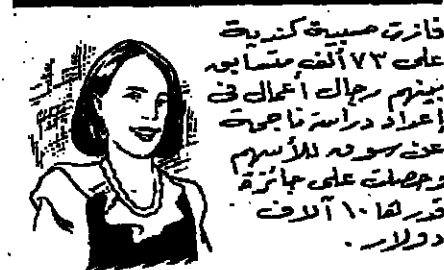 فازت صبية كندية
على ٧٣ ألف متسابق
بينهم رجال أعمال فى
إعداد دراسة ناجحة
عن سوق للأسهم
وحصلت على جائزة
قدرها ١٠ آلاف
دولار .